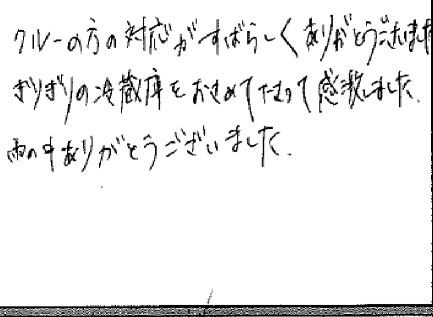 クルーの方の対応がすばらしくありがとうございました
ぎりぎりの冷蔵庫をおさめて下さって感激しました.
雨の中ありがとうございました.